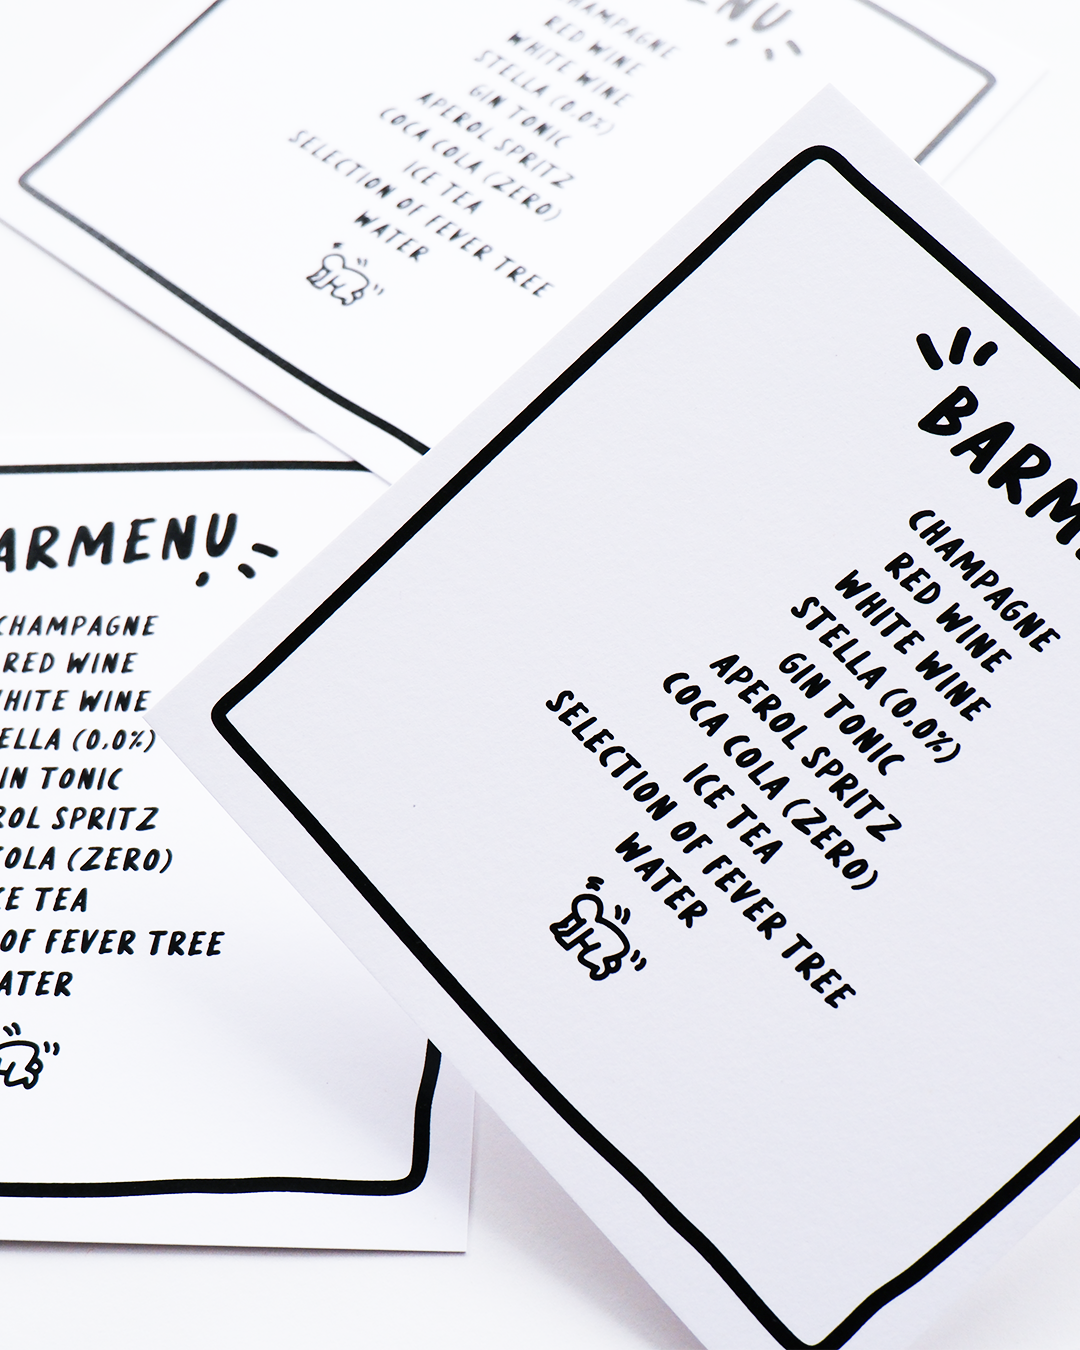 ENU
CHAMPAGNE
RED WINE
WHITE WINE
STELLA (0,0%)
GIN TONIC
APEROL SPRITZ
COCA COLA (ZERO)
ICE TEA
SELECTION OF FEVER TREE
WATER
BARM
CHAMPAGNE
RED WINE
WHITE WINE
STELLA (0,0%)
GIN TONIC
APEROL SPRITZ
COCA COLA (ZERO)
ICE TEA
SELECTION OF FEVER TREE
WATER
ARMENU
CHAMPAGNE
RED WINE
HITE WINE
ELLA (0,0%)
IN TONIC
ROL SPRITZ
COLA (ZERO)
CE TEA
OF FEVER TREE
ATER